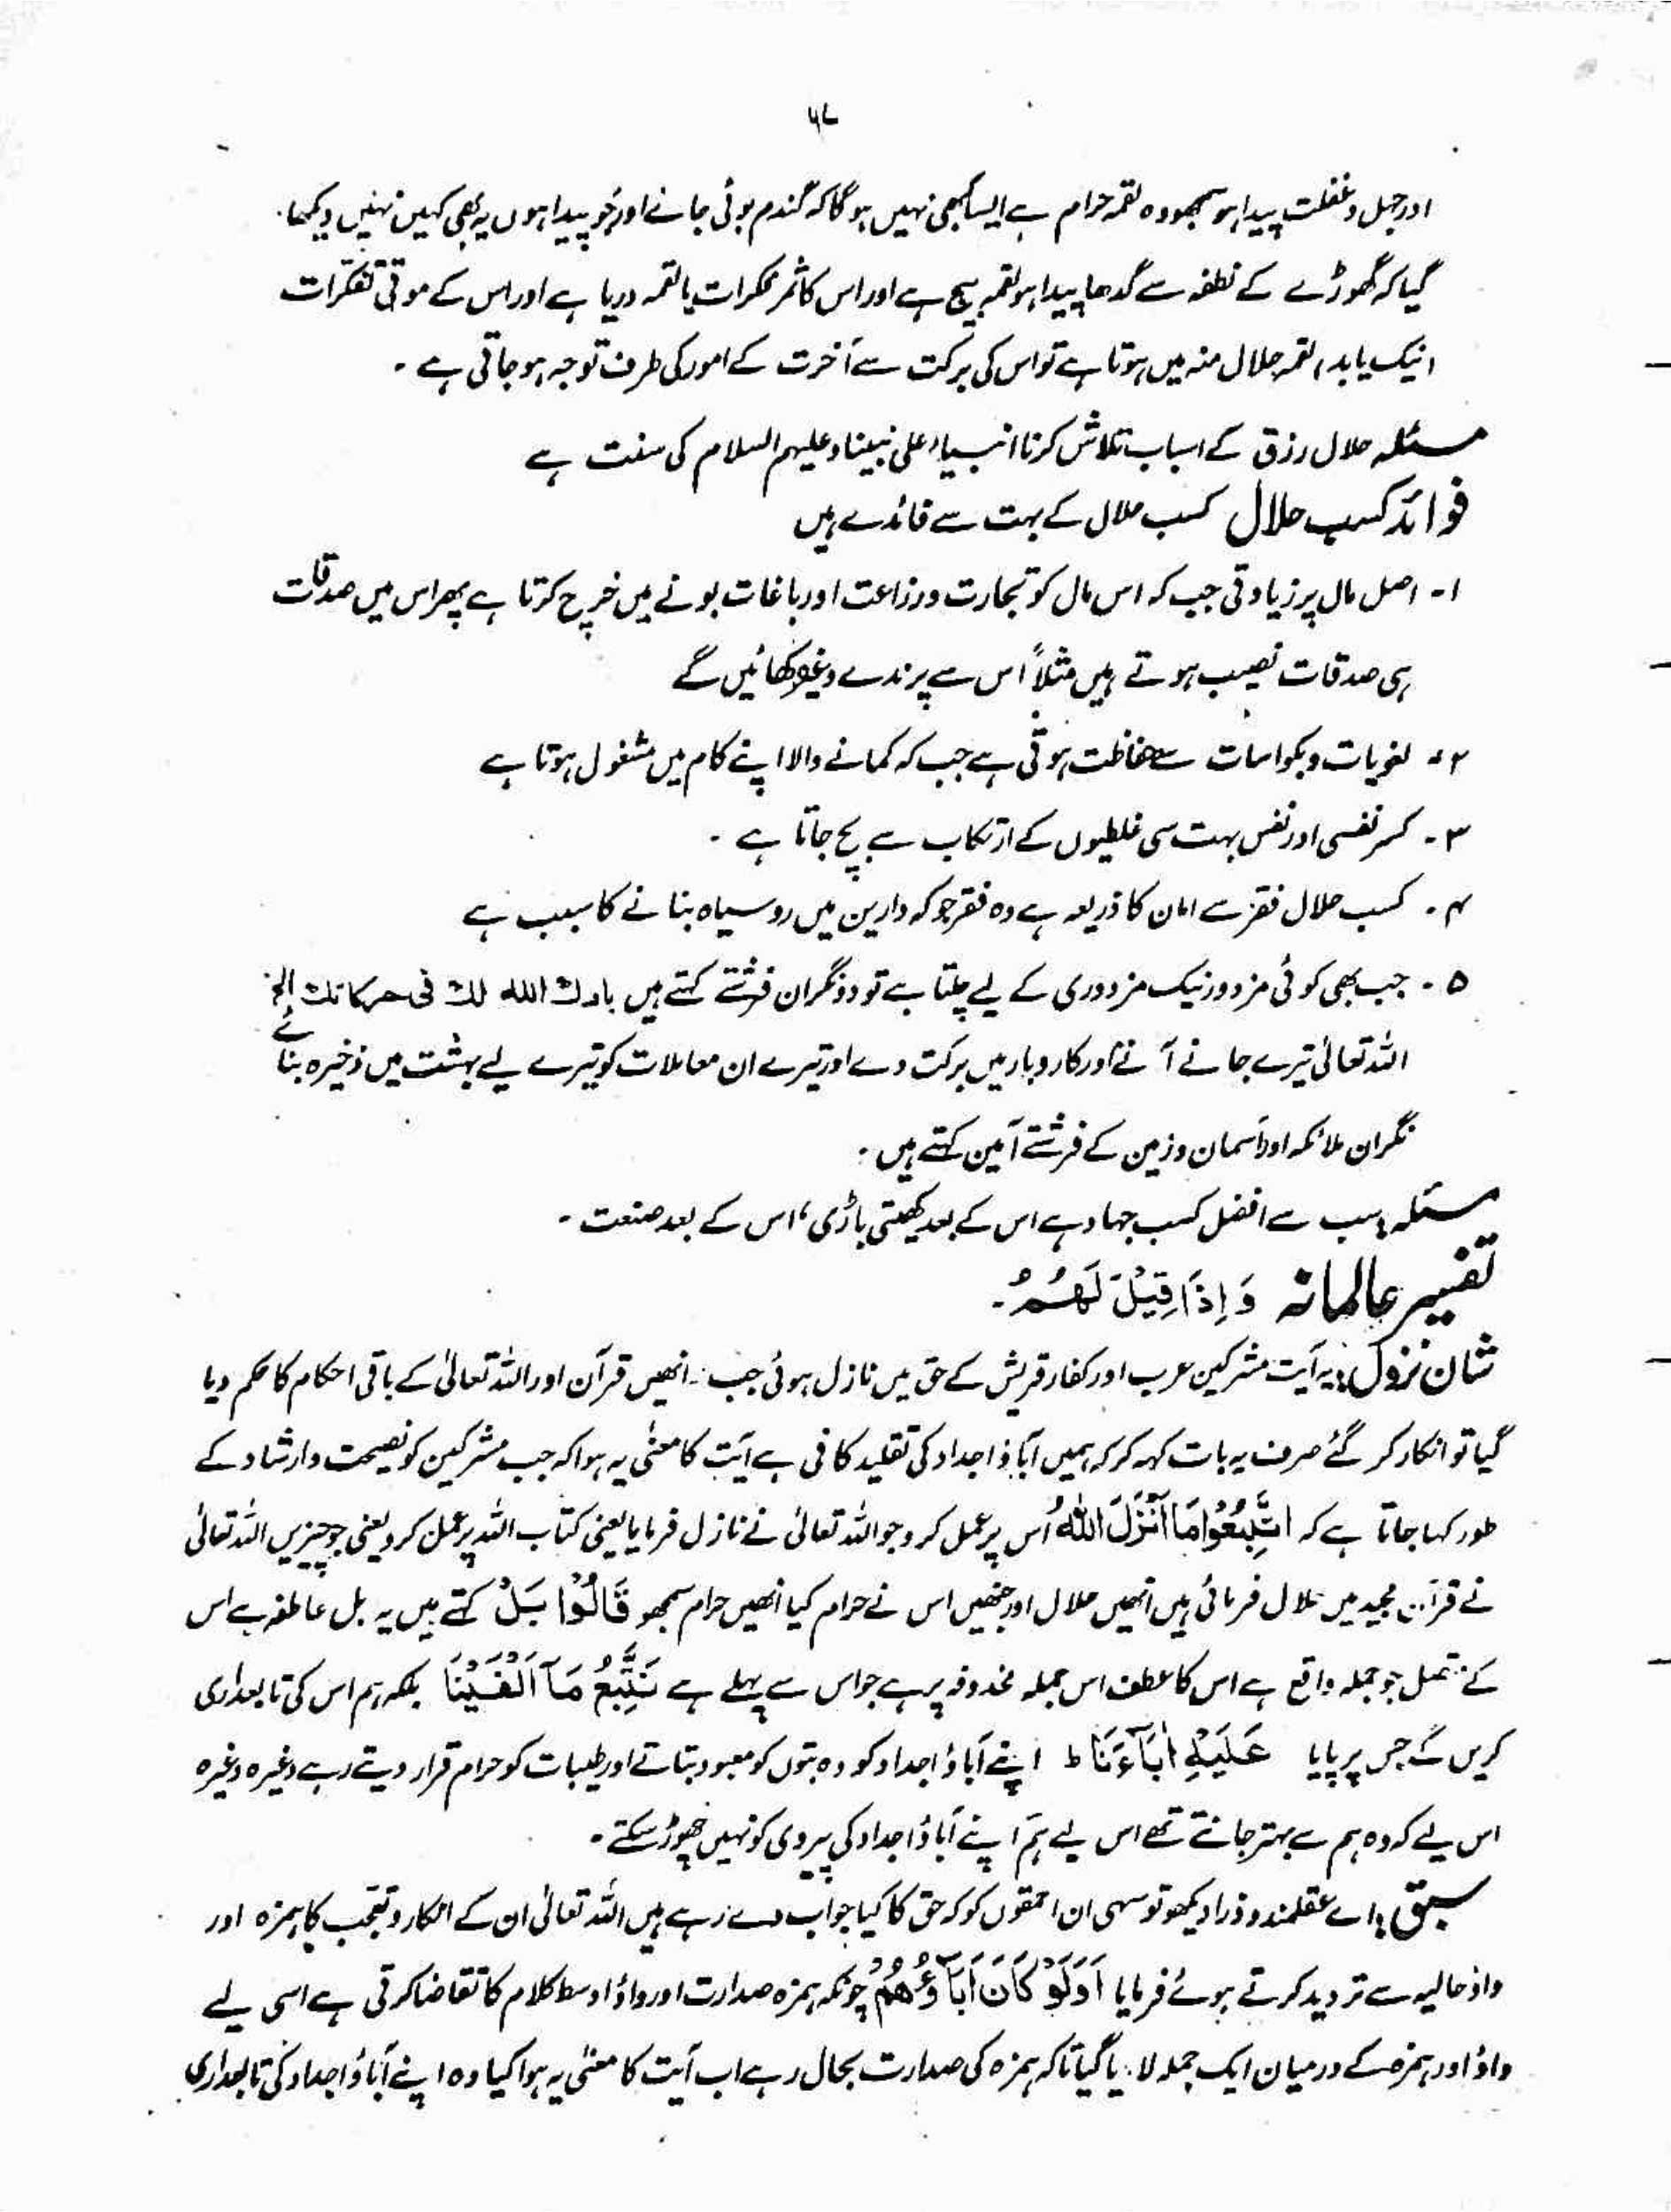 ۶۷
اور جہل و غفلت پیدا ہو سمجھو وہ لقمہ حرام ہے ایسا کبھی نہیں ہو گا کہ گندم بوئی جانے اور جَو پیدا ہوں یہ بھی کہیں نہیں دیکھا۔
گیا کہ گھوڑے کے نطفہ سے گدھا پیدا ہو لقمہ بیج ہے اور اس کا ثمر فکرات یا لقمہ دریا ہے اور اس کے موتی تفکرات
انیک یا بد، لقمہ حلال منہ میں ہوتا ہے تو اس کی برکت سے آخرت کے امور کی طرف توجہ ہو جاتی ہے ۔
مسئلہ حلال رزق کے اسباب تلاش کرنا انبیاء علی نبینا وعلیہم السلام کی سنت ہے
فوائد کسب حلال کسب حلال کے بہت سے فائدے ہیں
۱۔ اصل مال پر زیادتی جب کہ اس مال کو تجارت و زراعت اور باغات بونے میں خرچ کرتا ہے پھر اس میں صدقات
ہی صدقات نصیب ہوتے ہیں مثلاً اس سے پرندے وغیرہ کھائیں گے
۲۔ لغویات و بکواسات سے حفاظت ہوتی ہے جب کہ کمانے والا اپنے کام میں مشغول ہوتا ہے
۳۔ کسر نفسی اور نفس بہت سی غلطیوں کے ارتکاب سے بچ جاتا ہے ۔
۴۔ کسب حلال فقر سے امان کا ذریعہ ہے وہ فقر جو کہ دارین میں رو سیاہ بنانے کا سبب ہے
۵۔ جب بھی کوئی مزدور نیک مزدوری کے لیے چلتا ہے تو دو نگران فرشتے کہتے ہیں بارك الله لك فى حركاتك الخ
اللہ تعالیٰ تیرے جانے آنے اور کاروبار میں برکت دے اور تیرے ان معاملات کو تیرے لیے بہشت میں ذخیرہ بنائے
نگران ملائکہ اور آسمان و زمین کے فرشتے آمین کہتے ہیں ۔
مسئلہ: سب سے افضل کسب جہاد ہے اس کے بعد کھیتی باڑی، اس کے بعد صنعت ۔
تفسیر عالمانہ وَ اِذَا قِيْلَ لَهُمُ ۔
شان نزول: یہ آیت مشرکین عرب اور کفار قریش کے حق میں نازل ہوئی جب انھیں قرآن اور اللہ تعالیٰ کے باقی احکام کا حکم دیا
گیا تو انکار کر گئے صرف یہ بات کہہ کر کہ ہمیں آباؤ اجداد کی تقلید کافی ہے آیت کا معنیٰ یہ ہوا کہ جب مشرکین کو نصیحت و ارشاد کے
طور کہا جاتا ہے کہ اتَّبِعُوْا مَا اَنْزَلَ اللّٰهُ اُس پر عمل کرو جو اللہ تعالیٰ نے نازل فرمایا یعنی کتاب اللہ پر عمل کرو یعنی جو چیزیں اللہ تعالیٰ
نے قرآن مجید میں حلال فرمائی ہیں انھیں حلال اور جنھیں اس نے حرام کیا انھیں حرام سمجھو قَالُوْا بَلْ کہتے ہیں یہ بل عاطفہ ہے اس
کے متصل جو جملہ واقع ہے اس کا عطف اس جملہ محذوفہ پر ہے جو اس سے پہلے ہے نَتَّبِعُ مَآ اَلْفَيْنَا بلکہ ہم اس کی تابعداری
کریں گے جس پر پایا عَلَيْهِ اٰبَآءَنَا ط اپنے آباؤ اجداد کو وہ بتوں کو معبود بتاتے اور طیبات کو حرام قرار دیتے رہے وغیرہ وغیرہ
اس لیے کہ وہ ہم سے بہتر جانتے تھے اس لیے ہم اپنے آباؤ اجداد کی پیروی کو نہیں چھوڑ سکتے ۔
سبق: اے عقلمندو ذرا دیکھو تو سہی ان احمقوں کو کہ حق کا کیا جواب دے رہے ہیں اللہ تعالیٰ ان کے انکار و تعجب کا ہمزہ اور
واؤ حالیہ سے تردید کرتے ہوئے فرمایا اَوَلَوْ كَانَ اٰبَآؤُهُمْ چونکہ ہمزہ صدارت اور واؤ اوسط کلام کا تقاضا کرتی ہے اسی لیے
واؤ اور ہمزہ کے درمیان ایک جملہ لایا گیا تاکہ ہمزہ کی صدارت بحال رہے اب آیت کا معنیٰ یہ ہوا کیا وہ اپنے آباؤ اجداد کی تابعداری